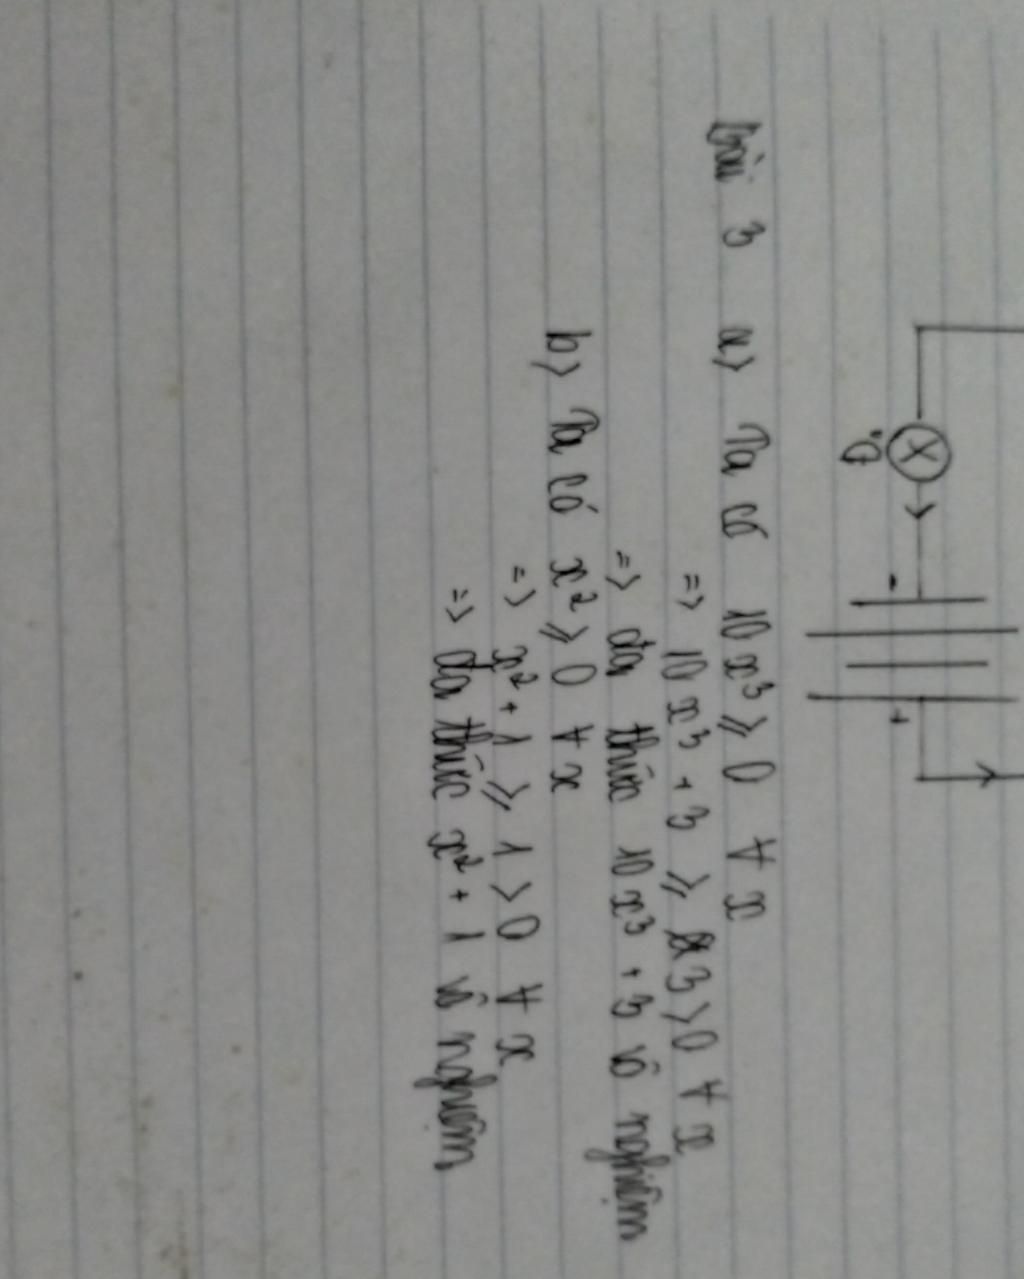 Đ
- +
Bài 3 a) Ta có 10x³ ≥ 0 ∀ x
=> 10x³ + 3 ≥ 3 > 0 ∀ x
=> đa thức 10x³ + 3 vô nghiệm
b) Ta có x² ≥ 0 ∀ x
=> x² + 1 ≥ 1 > 0 ∀ x
=> đa thức x² + 1 vô nghiệm